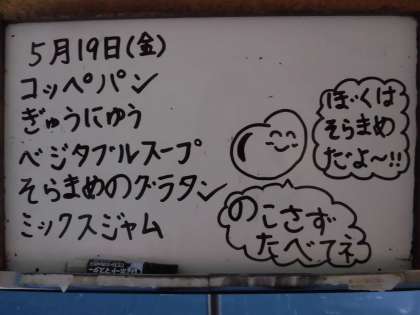 5月19日(金)
コッペパン
ぎゅうにゅう
ベジタブルスープ
そらまめのグラタン
ミックスジャム
ぼくは
そらまめ
だよ〜!!
のこさず
たべてネ